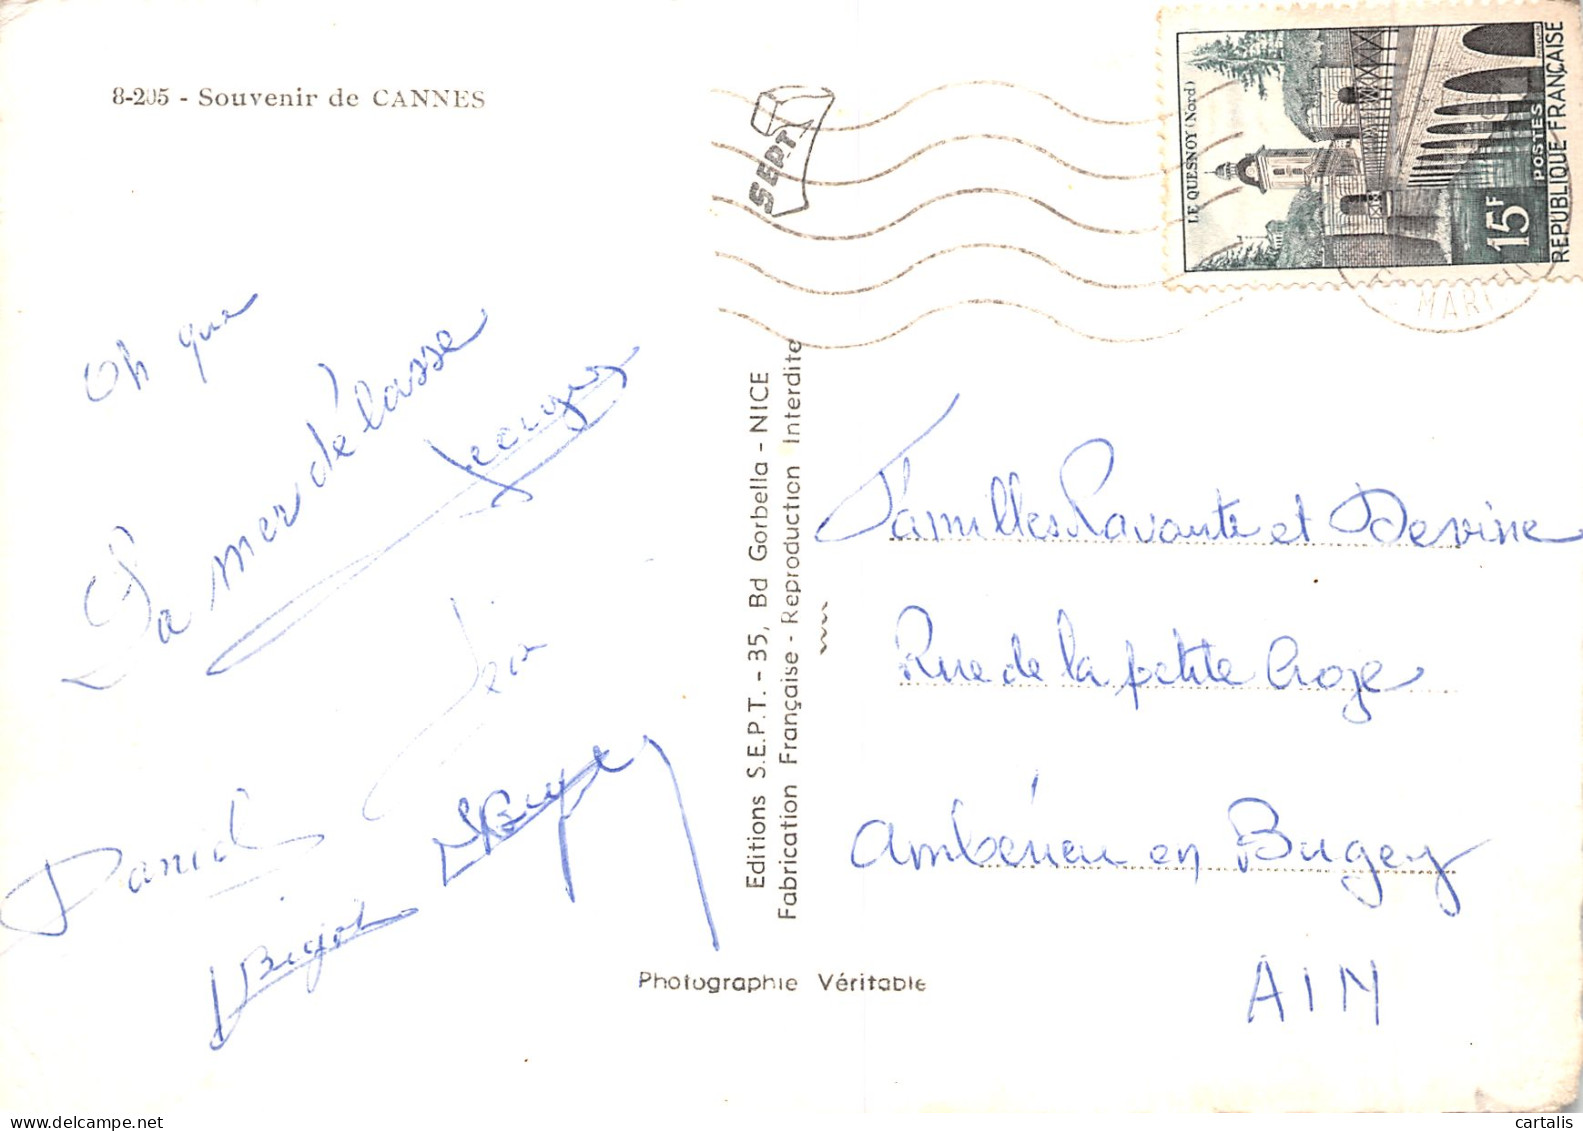 8-205 - Souvenir de CANNES
SEPT
LE QUESNOY (Nord)
15F
POSTES
REPUBLIQUE FRANÇAISE
MARI
Oh que
La mer délasse
Jean
Daniel
Bujol
Editions S.E.P.T. - 35, Bd Gorbella - NICE
Fabrication Française - Reproduction Interdite
Familles Pavante et Devine
Rue de la petite Croze
Ambérieu en Bugey
AIN
Photographie Véritable
cartalis